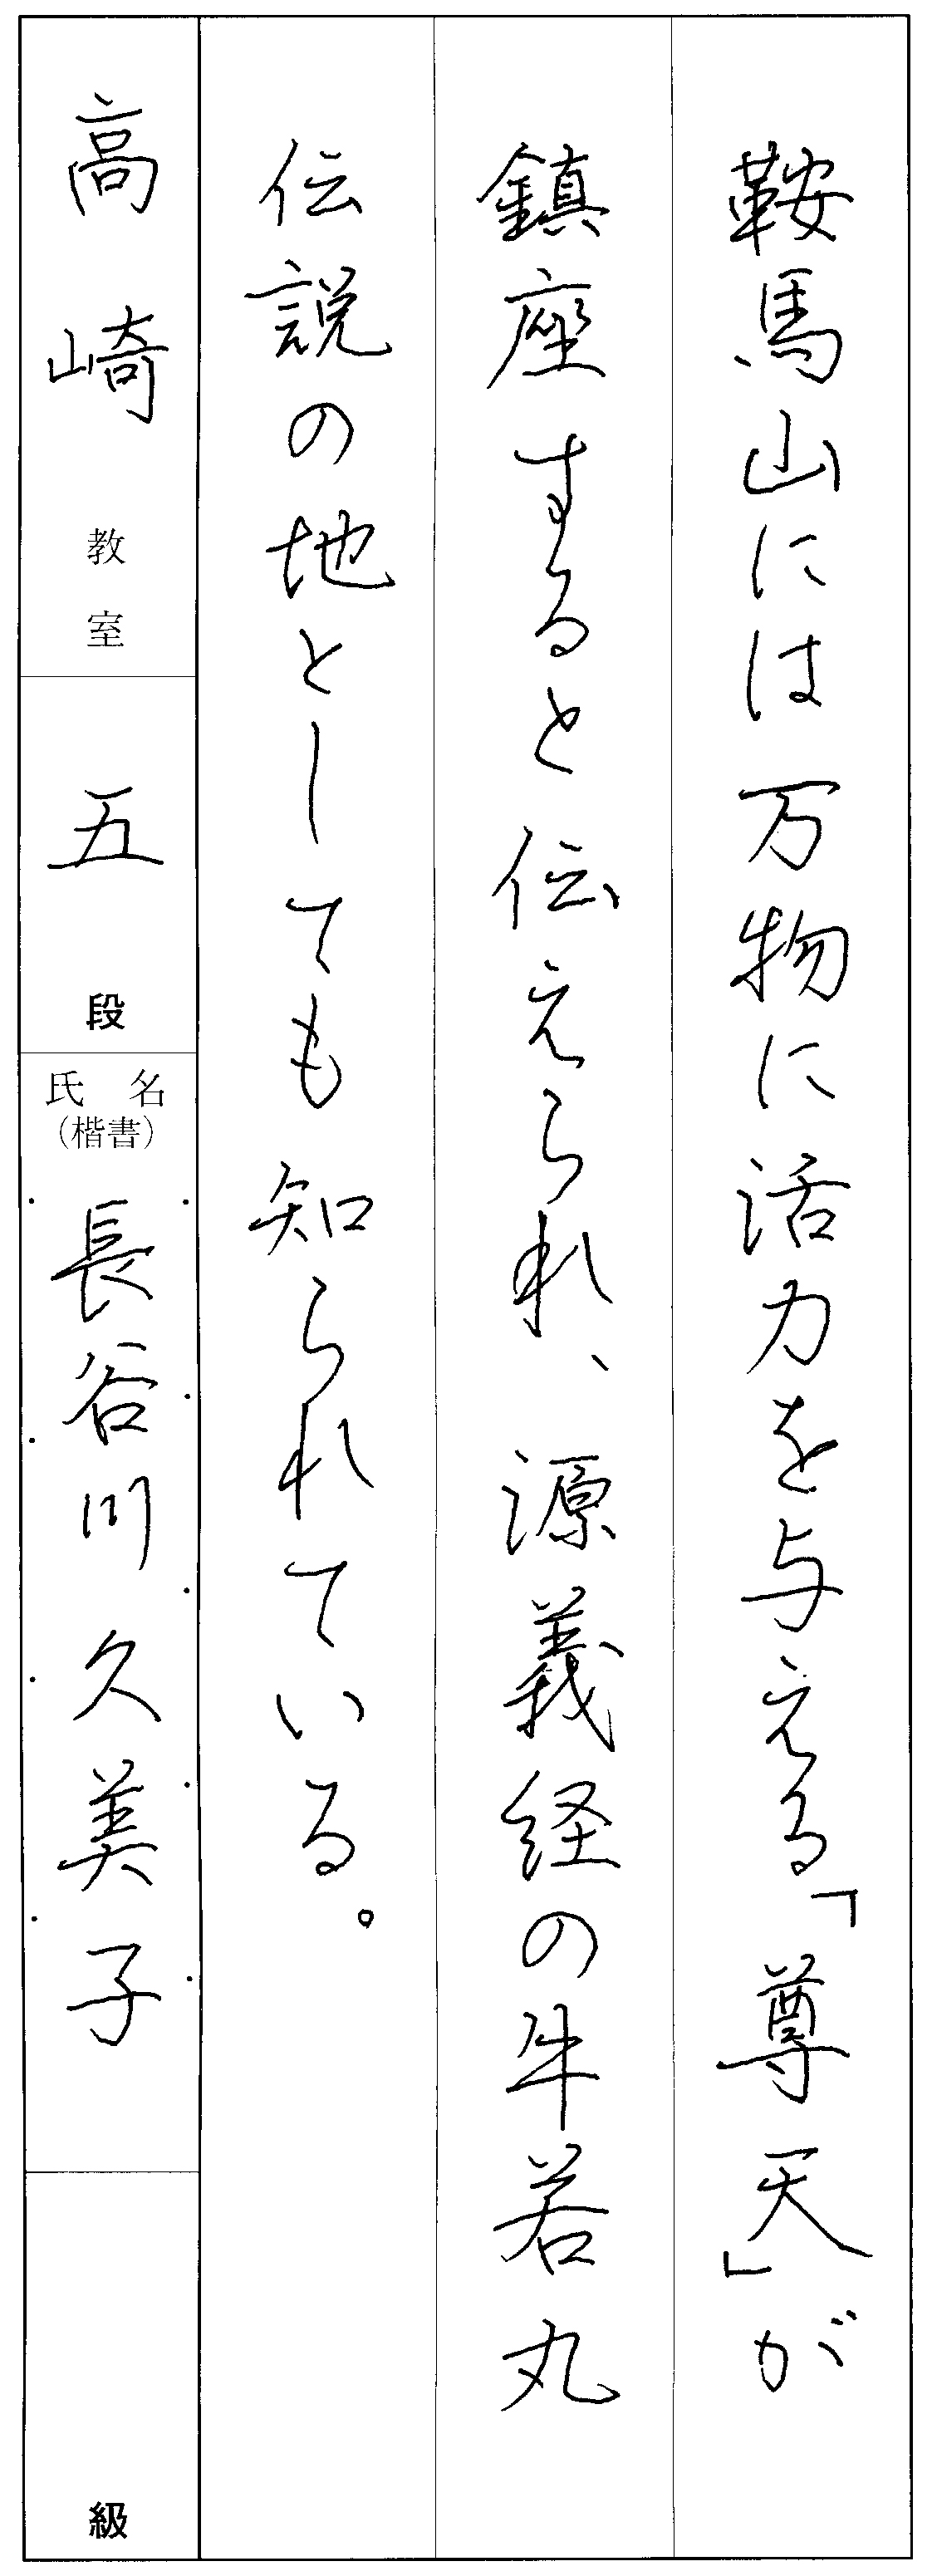 鞍馬山には万物に活力を与える「尊天」が
鎮座すると伝えられ、源義経の牛若丸
伝説の地としても知られている。
高崎教室
五段
氏名
（楷書）
長谷川久美子
級